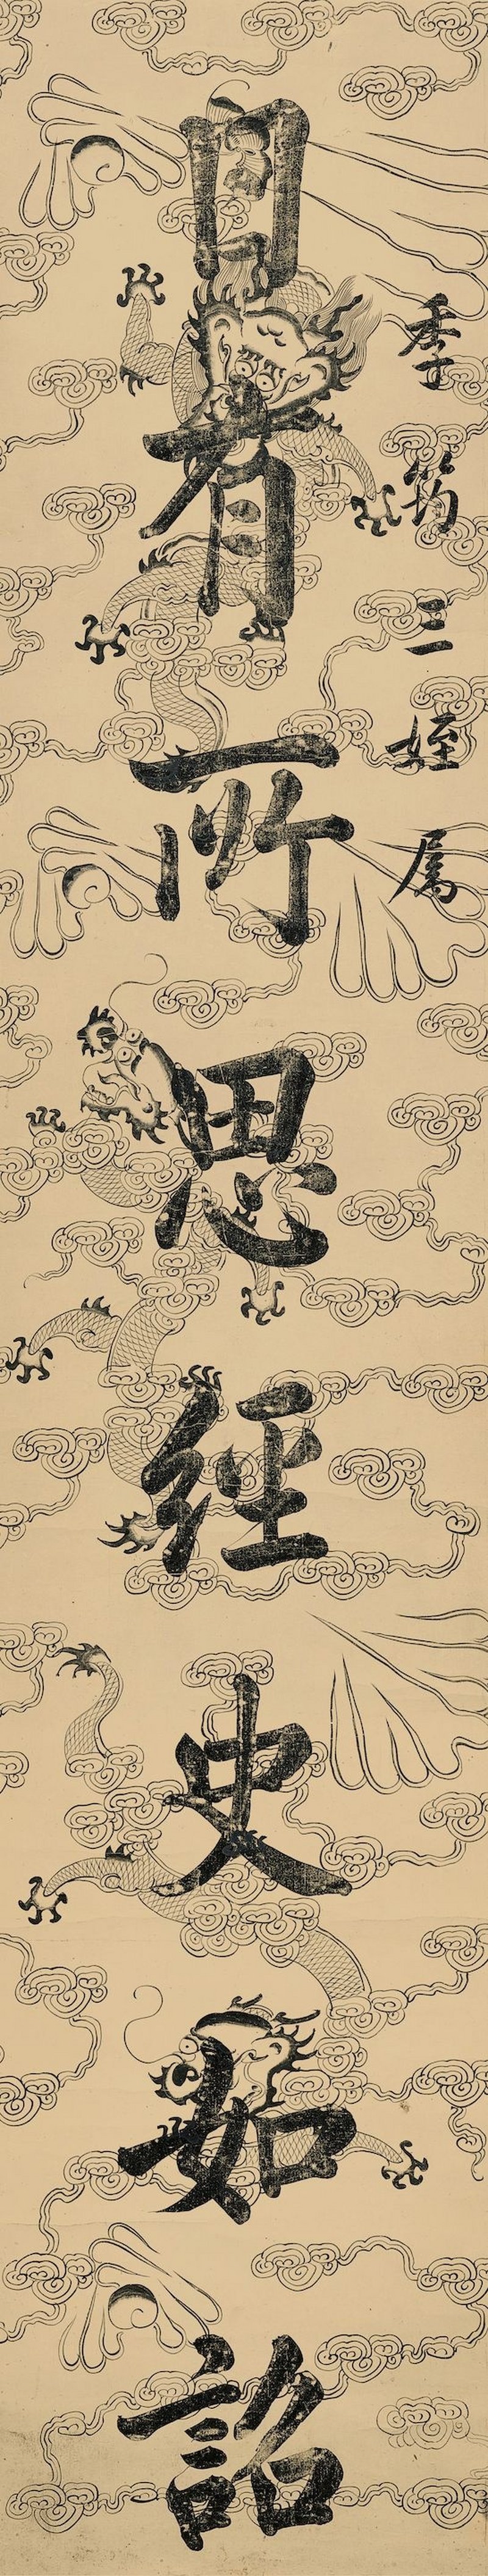 季筠三姪属
日有所思經史如詔